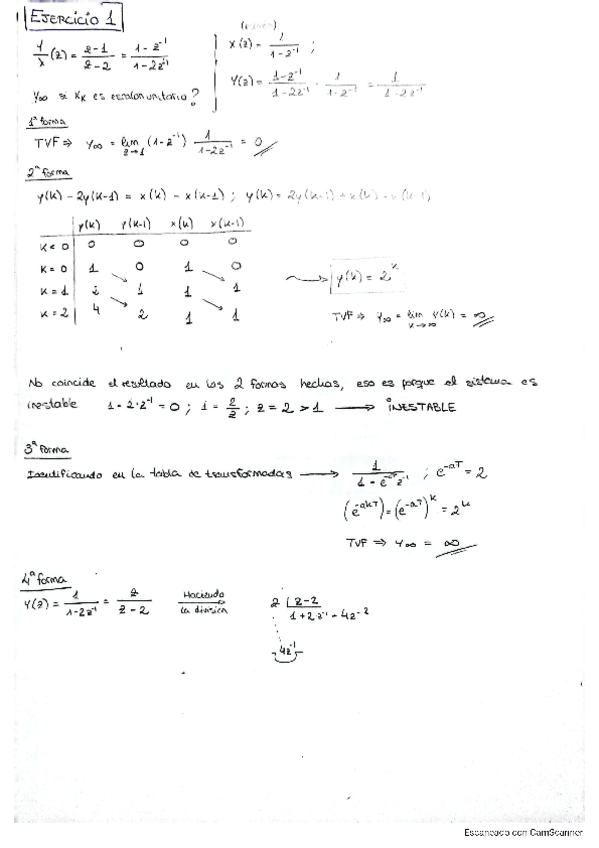 EJERCICIO 1
Y/X (z) = z-1/z-2 = 1-z⁻¹/1-2z⁻¹
X(z) = 1/1-z⁻¹ ;
Y∞ si Xk es escalón unitario?
Y(z) = 1-z⁻¹/1-2z⁻¹ · 1/1-z⁻¹ = 1/1-2z⁻¹
1ª forma
TVF ⇒ Y∞ = lim z→1 (1-z⁻¹) 1/1-2z⁻¹ = 0
2ª forma
y(k) - 2y(k-1) = x(k) - x(k-1) ; y(k) = 2y(k-1) + x(k) - x(k-1)
y(k) y(k-1) x(k) x(k-1)
k < 0 0 0 0 0
k = 0 1 0 1 0
k = 1 2 1 1 1
k = 2 4 2 1 1
y(k) = 2ᵏ
TVF ⇒ Y∞ = lim k→∞ y(k) = ∞
No coincide el resultado en las 2 formas hechas, eso es porque el sistema es
inestable 1 - 2·z⁻¹ = 0 ; 1 = 2/z ; z = 2 > 1 → INESTABLE
3ª forma
Identificando en la tabla de transformadas → 1/1 - e⁻ᵃᵀz⁻¹ ; e⁻ᵃᵀ = 2
(e⁻ᵃᵏᵀ) = (e⁻ᵃᵀ)ᵏ = 2ᵏ
TVF ⇒ Y∞ = ∞
4ª forma
Y(z) = 1/1-2z⁻¹ = z/z-2
Haciendo
la división
z |z-2
1+2z⁻¹-4z⁻²
4z⁻¹
Escaneado con CamScanner